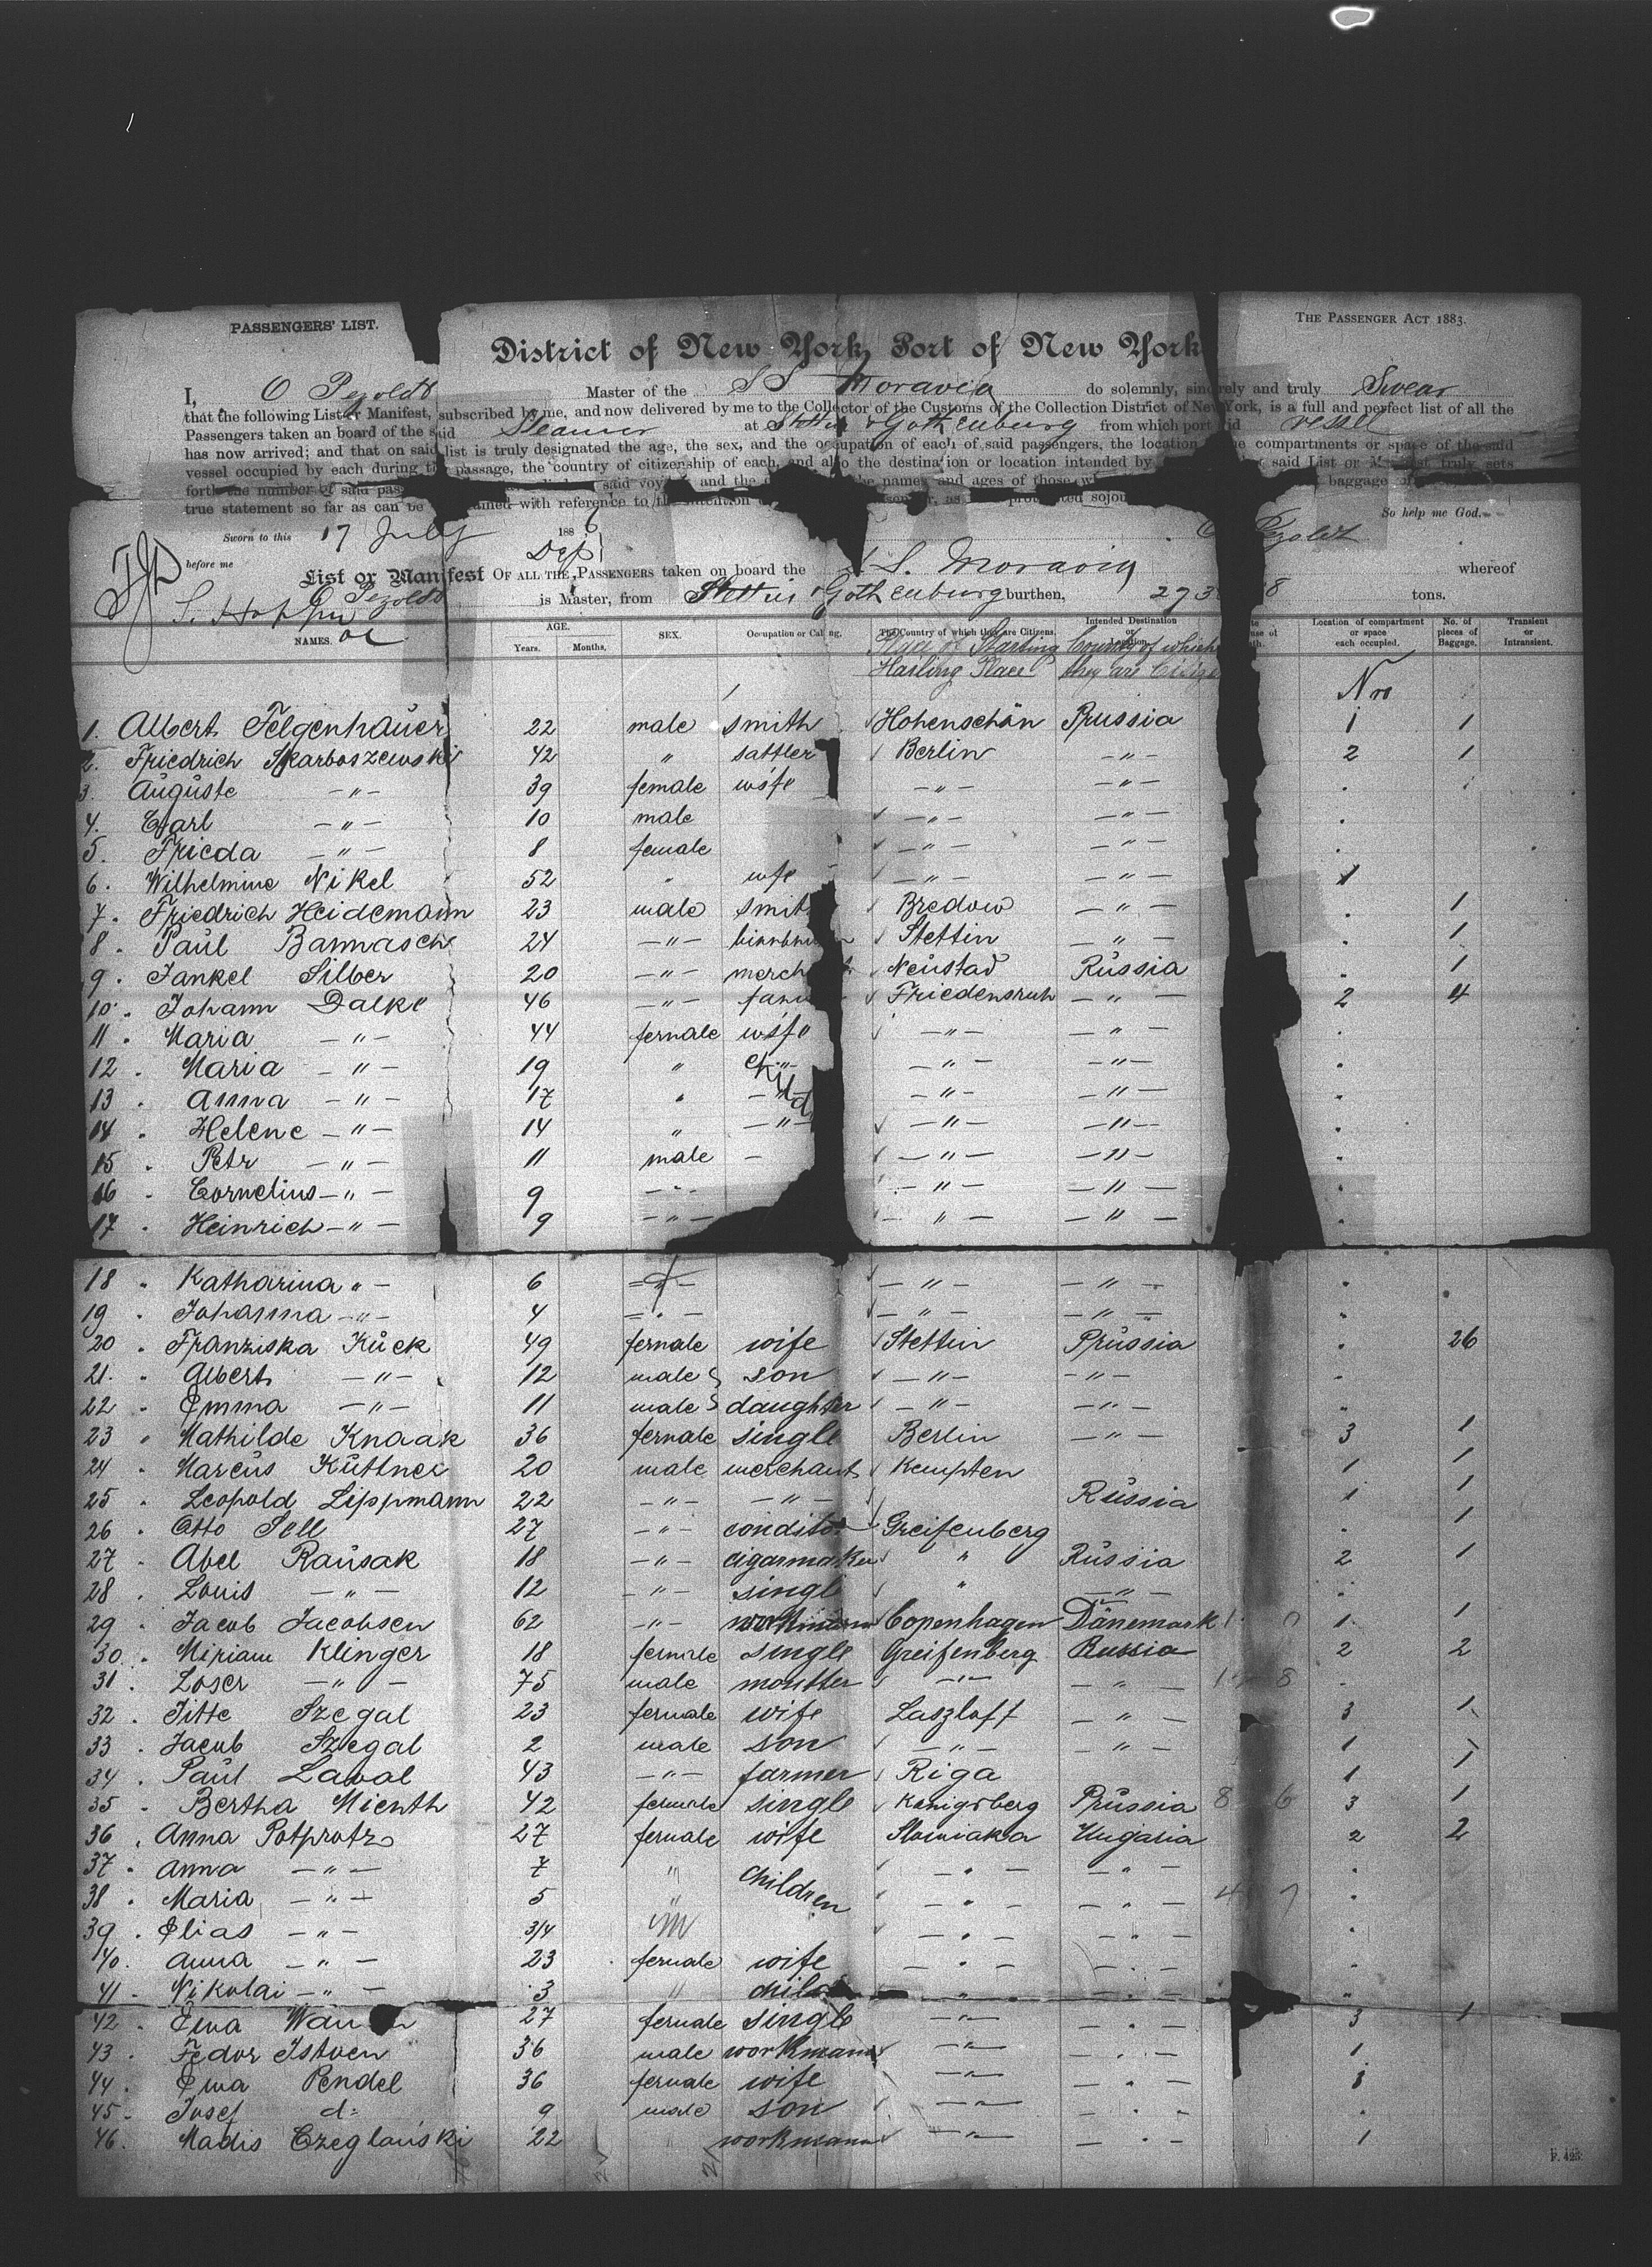 PASSENGERS' LIST.
THE PASSENGER ACT 1883.
District of New York, Port of New York
I, O Pezoldt Master of the SS Moravia do solemnly, sincerely and truly Swear
that the following List or Manifest, subscribed by me, and now delivered by me to the Collector of the Customs of the Collection District of New York, is a full and perfect list of all the
Passengers taken on board of the said Steamer at Stettin & Gothenburg from which port said vessel
has now arrived; and that on said list is truly designated the age, the sex, and the occupation of each of said passengers, the location of the compartments or space of the said
vessel occupied by each during the passage, the country of citizenship of each, and also the destination or location intended by said List or Manifest truly sets
forth the number of said said voyage, and the the names and ages of those baggage of
true statement so far as can be with reference to the intention as protracted sojou
So help me God.
Sworn to this 17 July 188 O Pezoldt
before me Dep
List or Manifest OF ALL THE PASSENGERS taken on board the S. S. Moravia whereof
O Pezoldt is Master, from Stettin & Gothenburg burthen, 273 8 tons.
NAMES. AGE. Years. Months. SEX. Occupation or Calling. The Country of which they are Citizens. Intended Destination or Location. Location of compartment or space each occupied. No. of pieces of Baggage. Transient or Intransient.
Place of Starting Country of which
Harling Place they are Citize
Nro
1. Albert Felgenhauer 22 male smith Hohenschön Prussia 1 1
2. Friedrich Skarboszewski 42 " sattler Berlin -"- 2 1
3. Auguste -"- 39 female wife -"- -"-
4. Carl -"- 10 male -"- -"-
5. Frieda -"- 8 female -"- -"-
6. Wilhelmine Nikel 52 " wife -"- -"- 1
7. Friedrich Heidemann 23 male smith Bredow -"- 1
8. Paul Bannasch 24 -"- Stettin -"- 1
9. Jankel Silber 20 -"- merch Neustad Russia 1
10. Johann Dalke 46 -"- Friedensruh -"- 2 4
11. Maria -"- 44 female wife -"- -"-
12. Maria -"- 19 " child -"- -"-
13. Anna -"- 17 " -"- -"- -"-
14. Helene -"- 14 " -"- -"- -"-
15. Petr -"- 11 male - -"- -"-
16. Cornelius -"- 9 -"- -"- -"-
17. Heinrich -"- 9 -"- -"- -"-
18. Katharina " - 6 -"- -"- -"-
19. Johanna -"- 4 -"- -"- -"-
20. Franziska Kück 49 female wife Stettin Prussia 26
21. Albert -"- 12 male son -"- -"-
22. Emma -"- 11 male daughter -"- -"-
23. Mathilde Knaak 36 female single Berlin -"- 3 1
24. Marcus Küttner 20 male merchant Kempten 1 1
25. Leopold Lippmann 22 -"- -"- Russia 1 1
26. Otto Sell 27 -"- conditor Greifenberg 1
27. Abel Rausak 18 -"- cigarmaker " Russia 2 1
28. Louis -"- 12 -"- single " -"-
29. Jacob Jacobsen 62 -"- workmann Copenhagen Dänemark 1 1
30. Miriam Klinger 18 female single Greifenberg Russia 2 2
31. Loser -"- 75 male -"- -"-
32. Titte Szegal 23 female wife Laszloff -"- 3 1
33. Jacob Szegal 2 male son -"- -"- 1
34. Paul Laval 43 -"- farmer Riga 1 1
35. Bertha Mienth 42 female single Königsberg Prussia 8 6 3 1
36. Anna Potprotz 27 female wife Ungaria 2 2
37. Anna -"- 7 " children -"- -"-
38. Maria -"- 5 " -"- -"- 4 7
39. Elias -"- 3/4 m -"- -"-
40. Anna -"- 23 female wife -"- -"-
41. Nikolai -"- 3 " child -"- -"-
42. Ewa 27 female single -"- -"- 3 1
43. Fedor Istven 36 male workmann -"- -"- 1
44. Ewa Pendel 36 female wife -"- -"- 3
45. Josef d: 9 male son -"- -"-
46. Madis Czeglanski 22 workmann -"- -"- 1
F. 425.